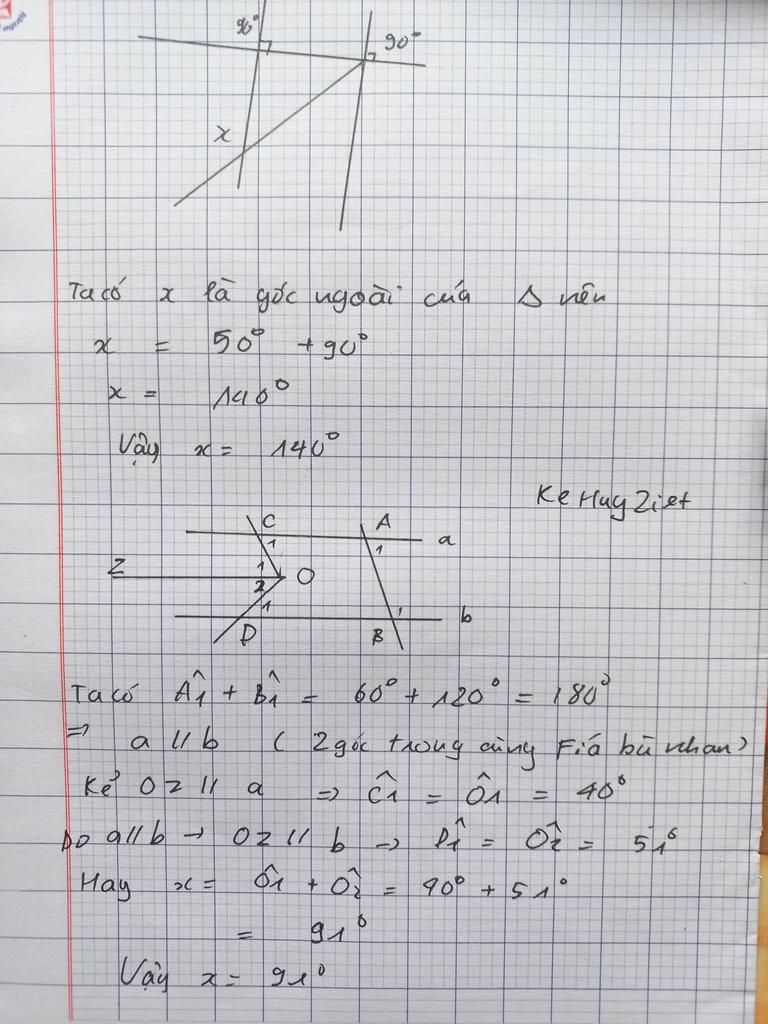 người
90°
90°
x
Ta có x là góc ngoài của Δ nên
x = 50° + 90°
x = 140°
Vậy x = 140°
C A
1 1 a
Z 1 O
2
1 1 b
D B
Ta có Â1 + B̂1 = 60° + 120° = 180°
⇒ a // b ( 2 góc trong cùng Fiá bù nhau)
Kẻ Oz // a ⇒ Ĉ1 = Ô1 = 40°
Do a // b → Oz // b → D̂1 = Ô2 = 51°
Hay x = Ô1 + Ô2 = 40° + 51°
= 91°
Vậy x = 91°